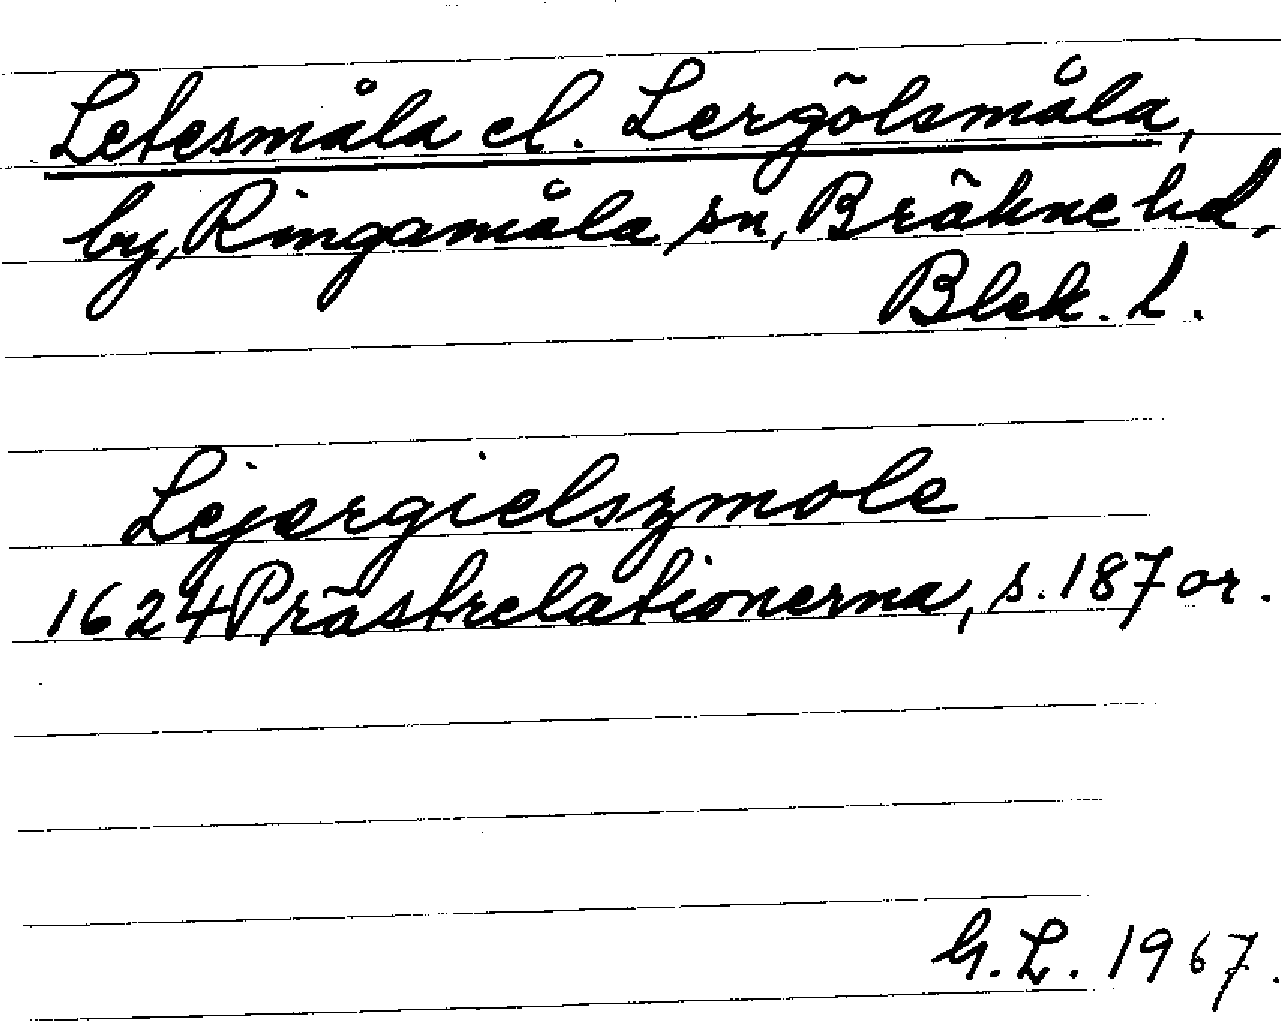 Letesmåla el. Lergölsmåla,
by, Ringamåla sn, Bräkne hd,
Blek. l.
Lejergielszmole
1624 Prästrelationerna, s. 187 or.
G. L. 1967.